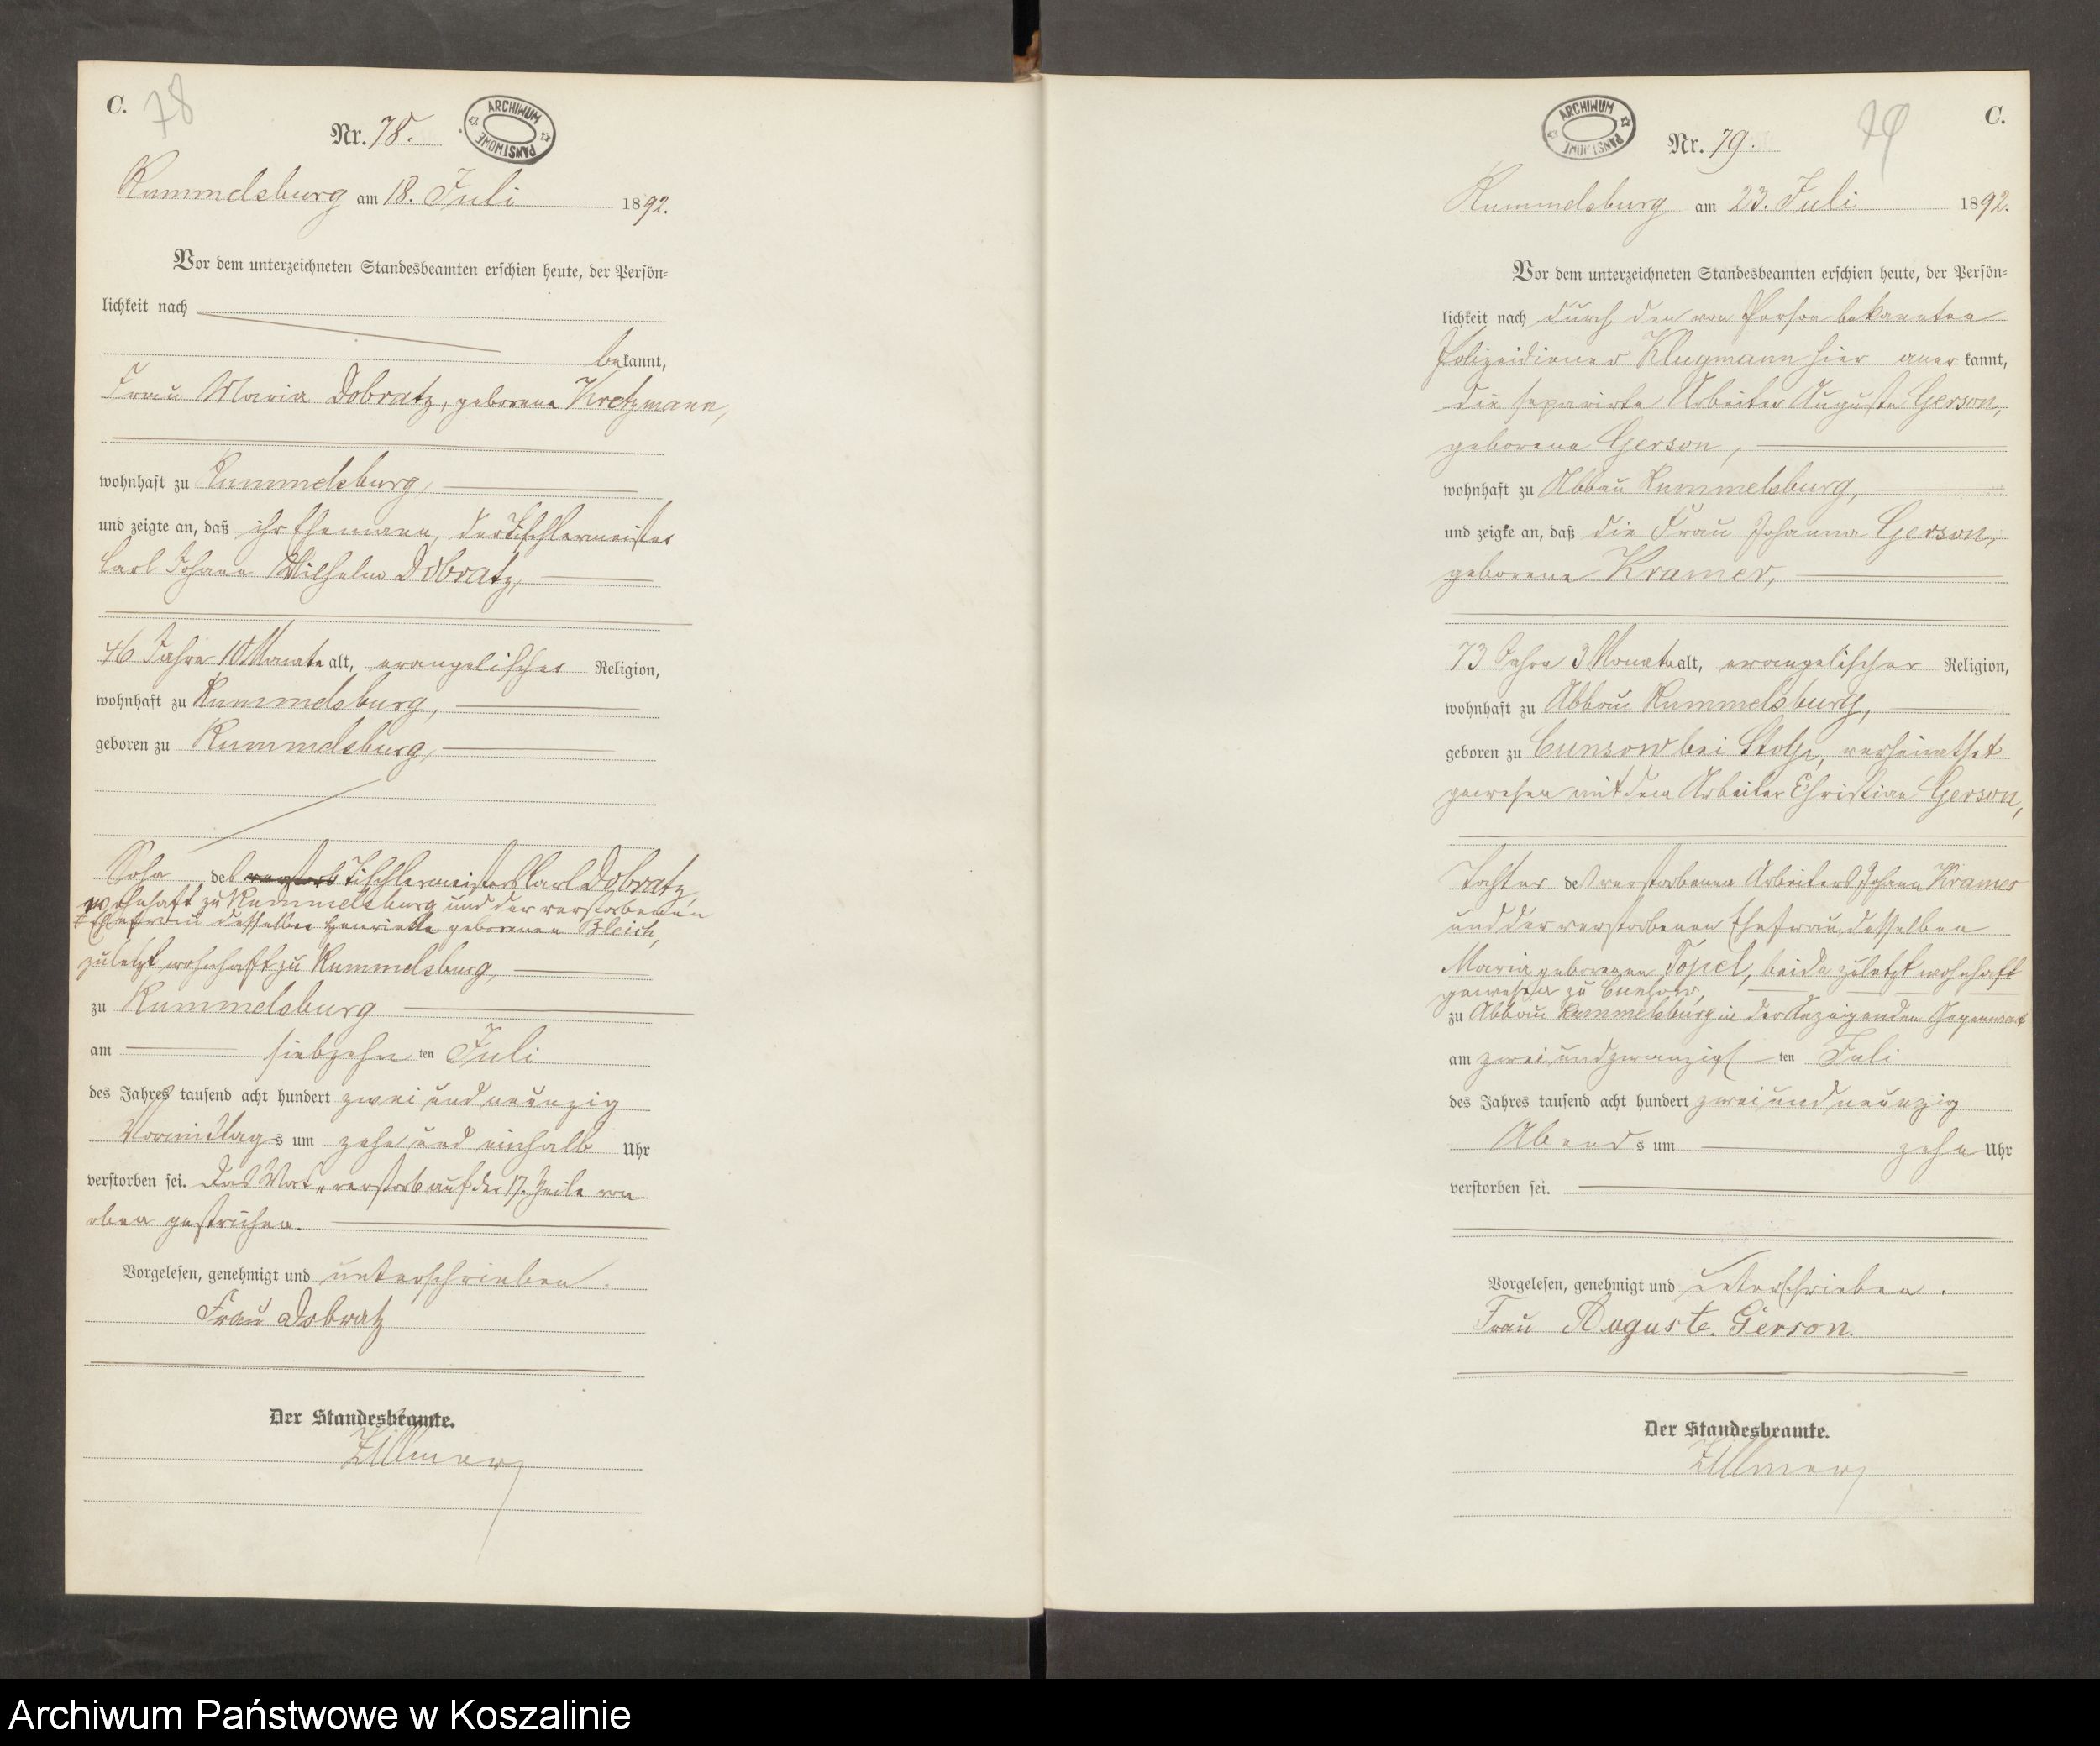 C.
78
Nr. 78.
ARCHIWUM PAŃSTWOWE
Rummelsburg am 18. Juli 1892.
Vor dem unterzeichneten Standesbeamten erschien heute, der Persön-
lichkeit nach
bekannt,
Frau Maria Dobratz, geborene Kretzmann,
wohnhaft zu Rummelsburg,
und zeigte an, daß ihr Ehemann, der Tischlermeister
Carl Johann Wilhelm Dobratz,
46 Jahre 10 Monate alt, evangelischer Religion,
wohnhaft zu Rummelsburg,
geboren zu Rummelsburg,
Sohn des verstorb Tischlermeisters Carl Dobratz,
wohnhaft zu Rummelsburg und der verstorbenen
Ehefrau desselben Henriette geborenen Bleich,
zuletzt wohnhaft zu Rummelsburg,
zu Rummelsburg
am siebzehn ten Juli
des Jahres tausend acht hundert zwei und neunzig
Vormittags um zehn und einhalb Uhr
verstorben sei. Das Wort „verstorb auf der 17. Zeile von
oben gestrichen.
Vorgelesen, genehmigt und unterschrieben.
Frau Dobratz
Der Standesbeamte.
Zillmer
C.
79
Nr. 79.
ARCHIWUM PAŃSTWOWE
Rummelsburg am 23. Juli 1892.
Vor dem unterzeichneten Standesbeamten erschien heute, der Persön-
lichkeit nach durch den von Person bekannten
Polizeidiener Klugmann hier aner kannt,
die separirte Arbeiter Auguste Gerson,
geborene Gerson,
wohnhaft zu Abbau Rummelsburg,
und zeigte an, daß die Frau Johanna Gerson,
geborene Kramer,
73 Jahre 3 Monate alt, evangelischer Religion,
wohnhaft zu Abbau Rummelsburg,
geboren zu Cunsow bei Stolp, verheirathet
gewesen mit dem Arbeiter Christian Gerson,
Tochter des verstorbenen Arbeiters Johann Kramer
und der verstorbenen Ehefrau desselben
Maria geborenen Topel, beide zuletzt wohnhaft
gewesen zu Cunsow,
zu Abbau Rummelsburg in der Anzeigenden Gegenwart
am zwei und zwanzigs ten Juli
des Jahres tausend acht hundert zwei und neunzig
Abends um zehn Uhr
verstorben sei.
Vorgelesen, genehmigt und unterschrieben.
Frau Auguste. Gerson.
Der Standesbeamte.
Zillmer
Archiwum Państwowe w Koszalinie